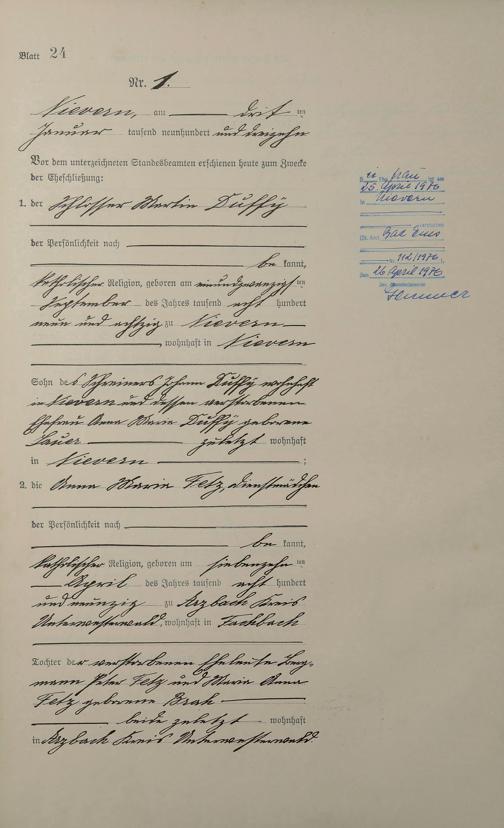 Blatt 24
Nr. 1.
Nievern, am drit ten
Januar tausend neunhundert und dreizehn
Vor dem unterzeichneten Standesbeamten erschienen heute zum Zwecke
der Eheschließung:
1. der Schlosser Martin Duffy
der Persönlichkeit nach
be kannt,
katholischer Religion, geboren am einundzwanzigsten
September des Jahres tausend acht hundert
neun und achtzig zu Nievern
, wohnhaft in Nievern
Sohn des Schreiners Johann Duffy wohnhaft
in Nievern und dessen verstorbenen
Ehefrau Anna Maria Duffy geborene
Sauer zuletzt wohnhaft
in Nievern ;
2. die Anna Maria Fetz, Dienstmädchen
der Persönlichkeit nach
be kannt,
katholischer Religion, geboren am siebenzehn ten
April des Jahres tausend acht hundert
und neunzig zu Arzbach Kreis
Unterwesterwald, wohnhaft in Fachbach
Tochter der verstorbenen Eheleute Berg-
mann Peter Fetz und Maria Anna
Fetz geborene
beide zuletzt wohnhaft
in Arzbach Kreis Unterwesterwald.
frau
25. April 1976
in Nievern
Bad Ems
Nr. 112/1976
Den 26 April 1976